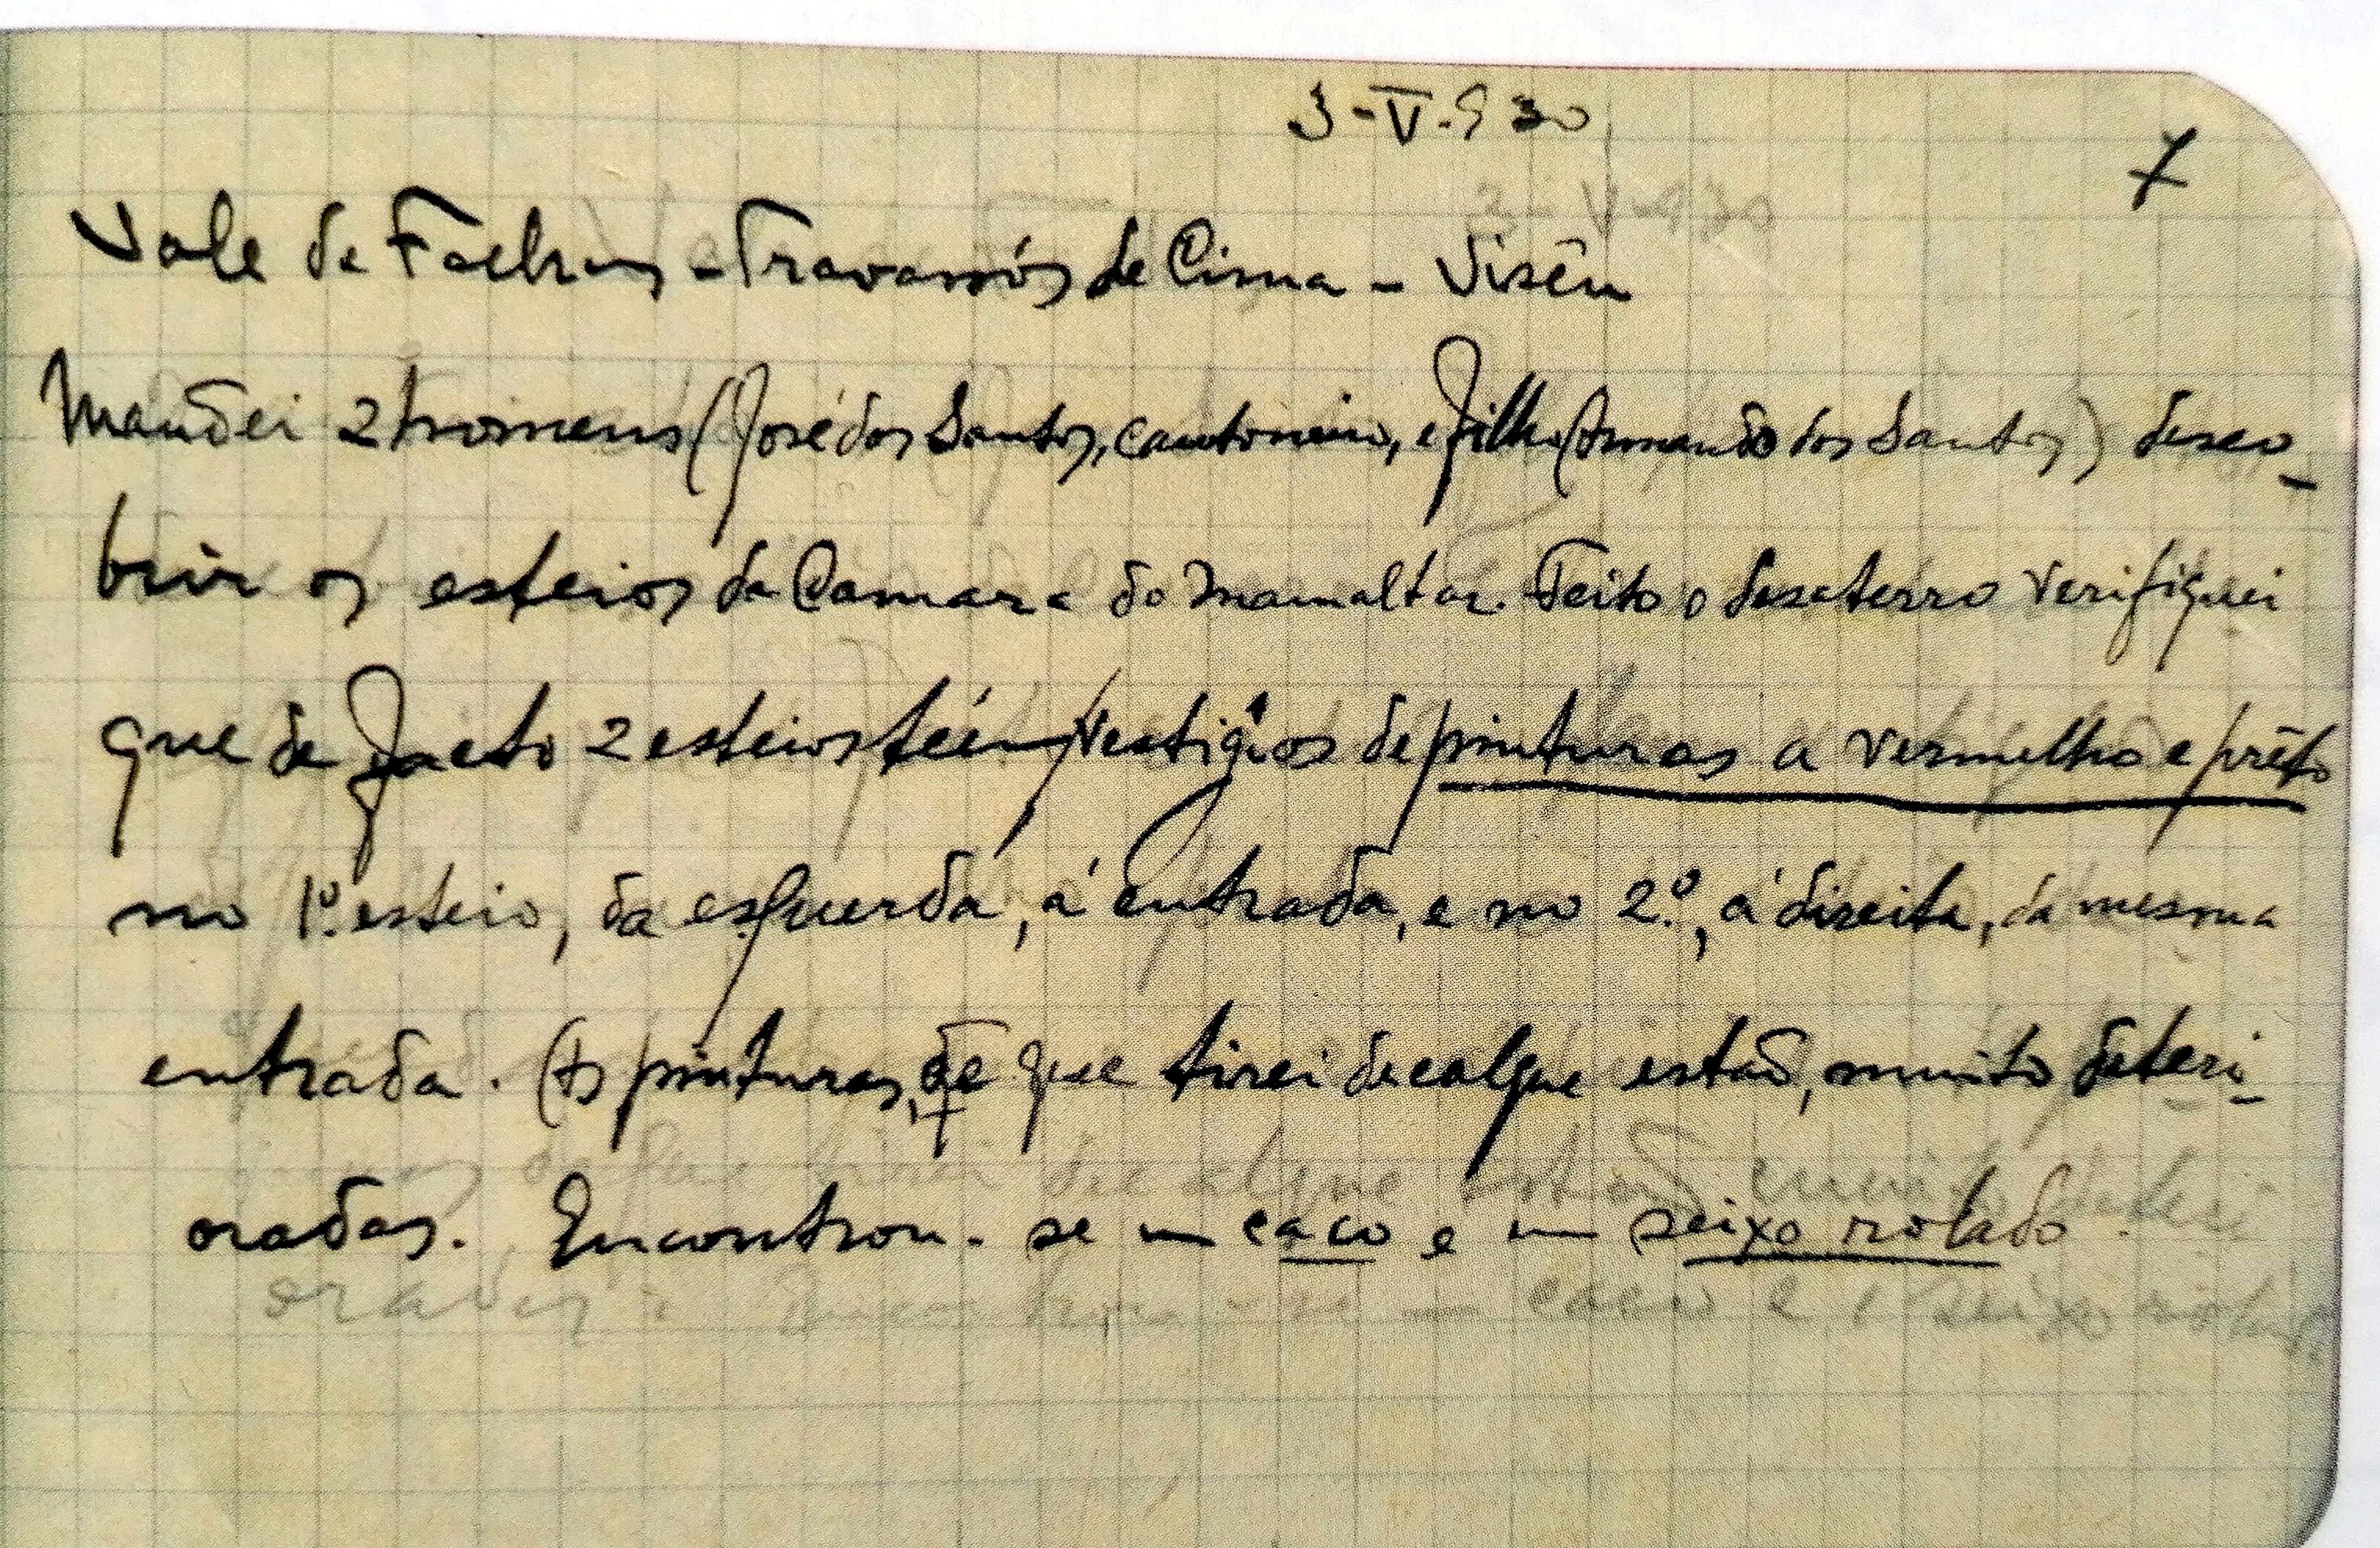 3-V-930
7
Vale de Fachas - Travassós de Cima - Visêu
Mandei 2 homens (José dos Santos, cantoneiro, e filho Armando dos Santos) desco-
brir os esteios da Camara do Mamaltar. Feito o desaterro verifiquei
que de facto 2 esteios téem vestigios de pinturas a vermelho e prêto
no 1º. esteio, da esquerda, á entrada, e no 2.º, á direita, da mesma
entrada. As pinturas, de que tirei decalque estão, muito deteri-
oradas. Encontrou-se um caco e um seixo rolado.